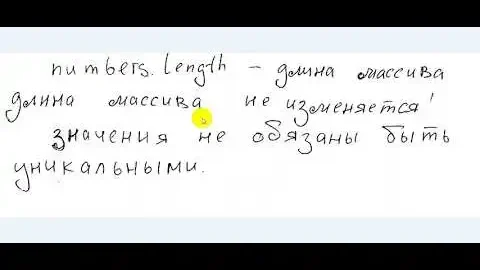 numbers.length – длина массива
длина массива не изменяется!
значения не обязаны быть
уникальными.